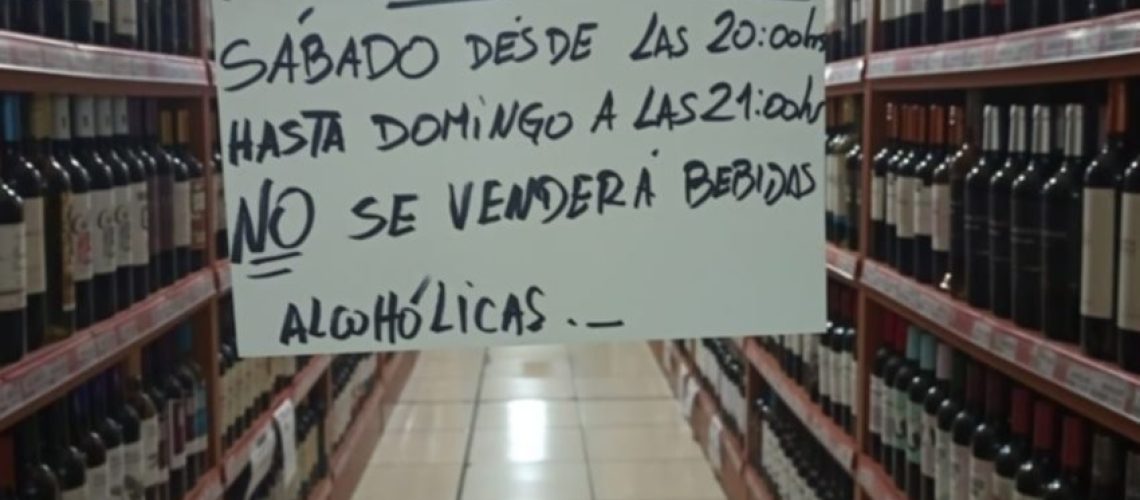 SÁBADO DESDE LAS 20:00hs
HASTA DOMINGO A LAS 21:00hs
NO SE VENDERÁ BEBIDAS
ALCOHÓLICAS.—